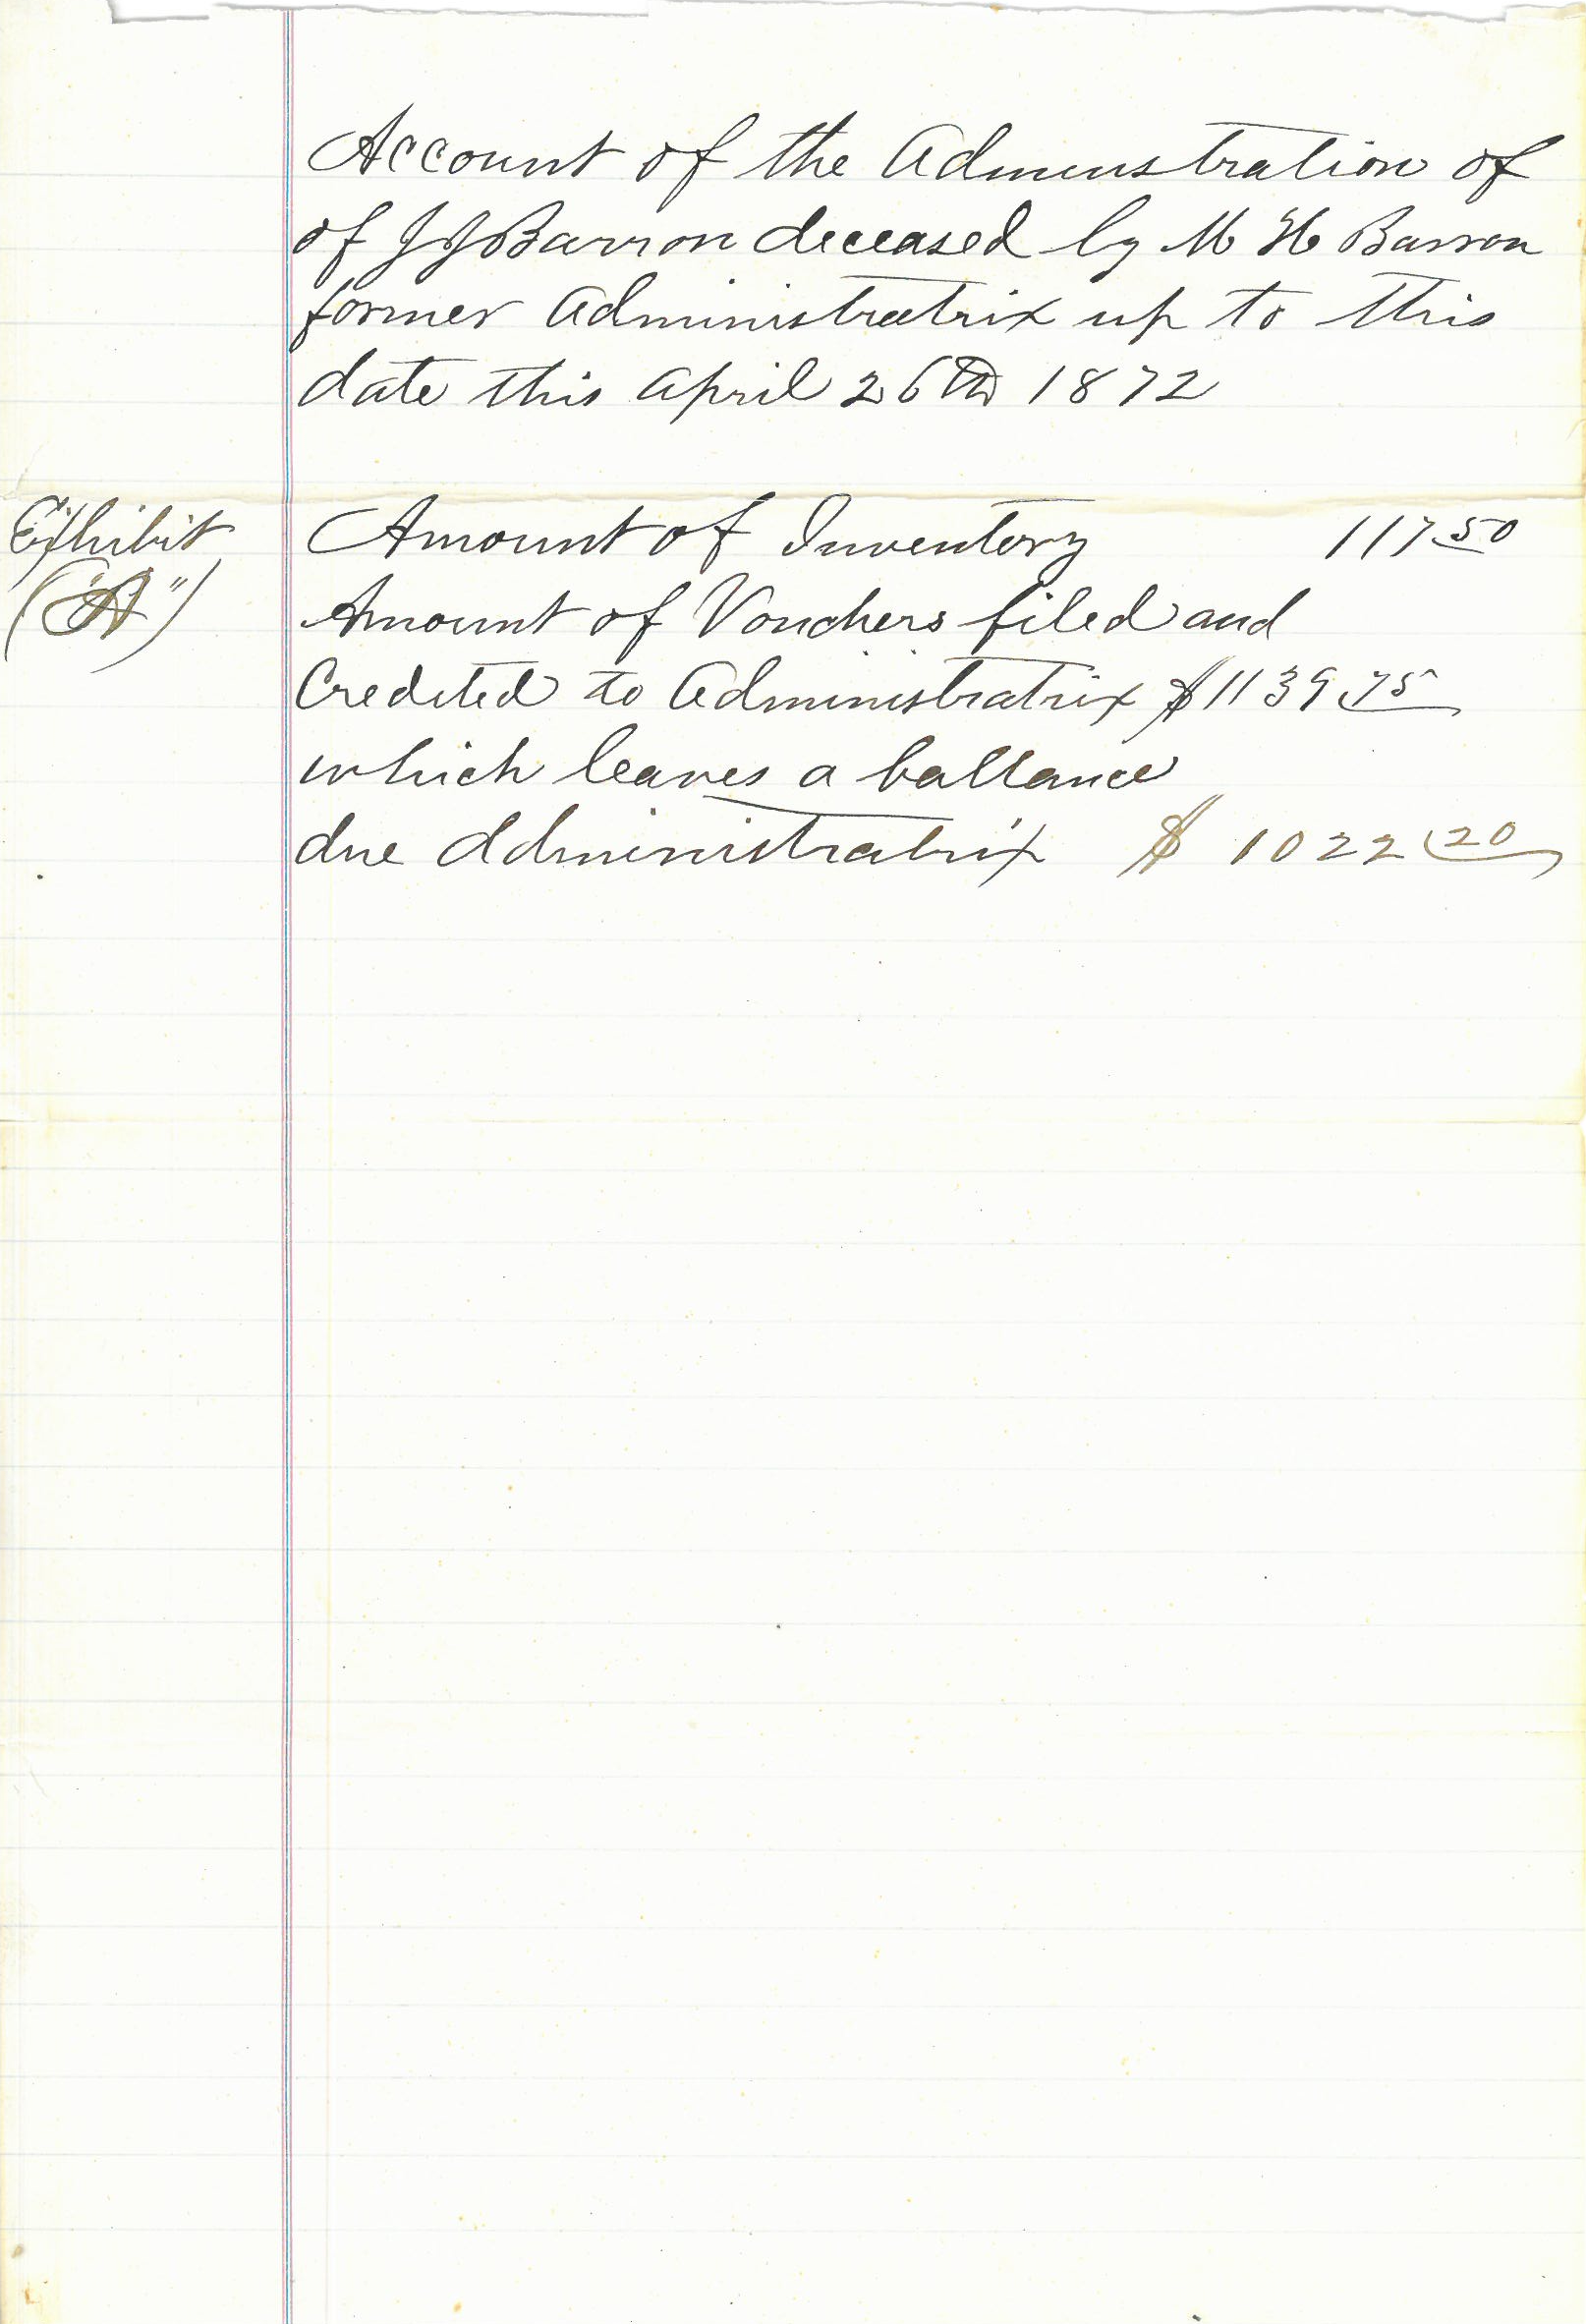 Account of the Adminstration of
of J J Barron deceased by M H Barron
former Administratrix up to this
date this April 26th 1872
Exhibit
("A")
Amount of Inventory 117 50
Amount of Vouchers filed and
Credited to Administratrix $1139 75
which leaves a ballance
due Administratrix $ 1022 20